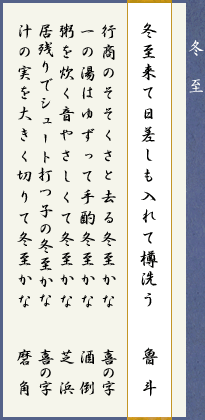 冬至
冬至来て日差しも入れて樽洗う 魯斗
行商のそそくさと去る冬至かな 喜の字
一の湯はゆずって手酌冬至かな 酒倒
粥を炊く音やさしくて冬至かな 芝浜
居残りでシュート打つ子の冬至かな 喜の字
汁の実を大きく切りて冬至かな 磨角